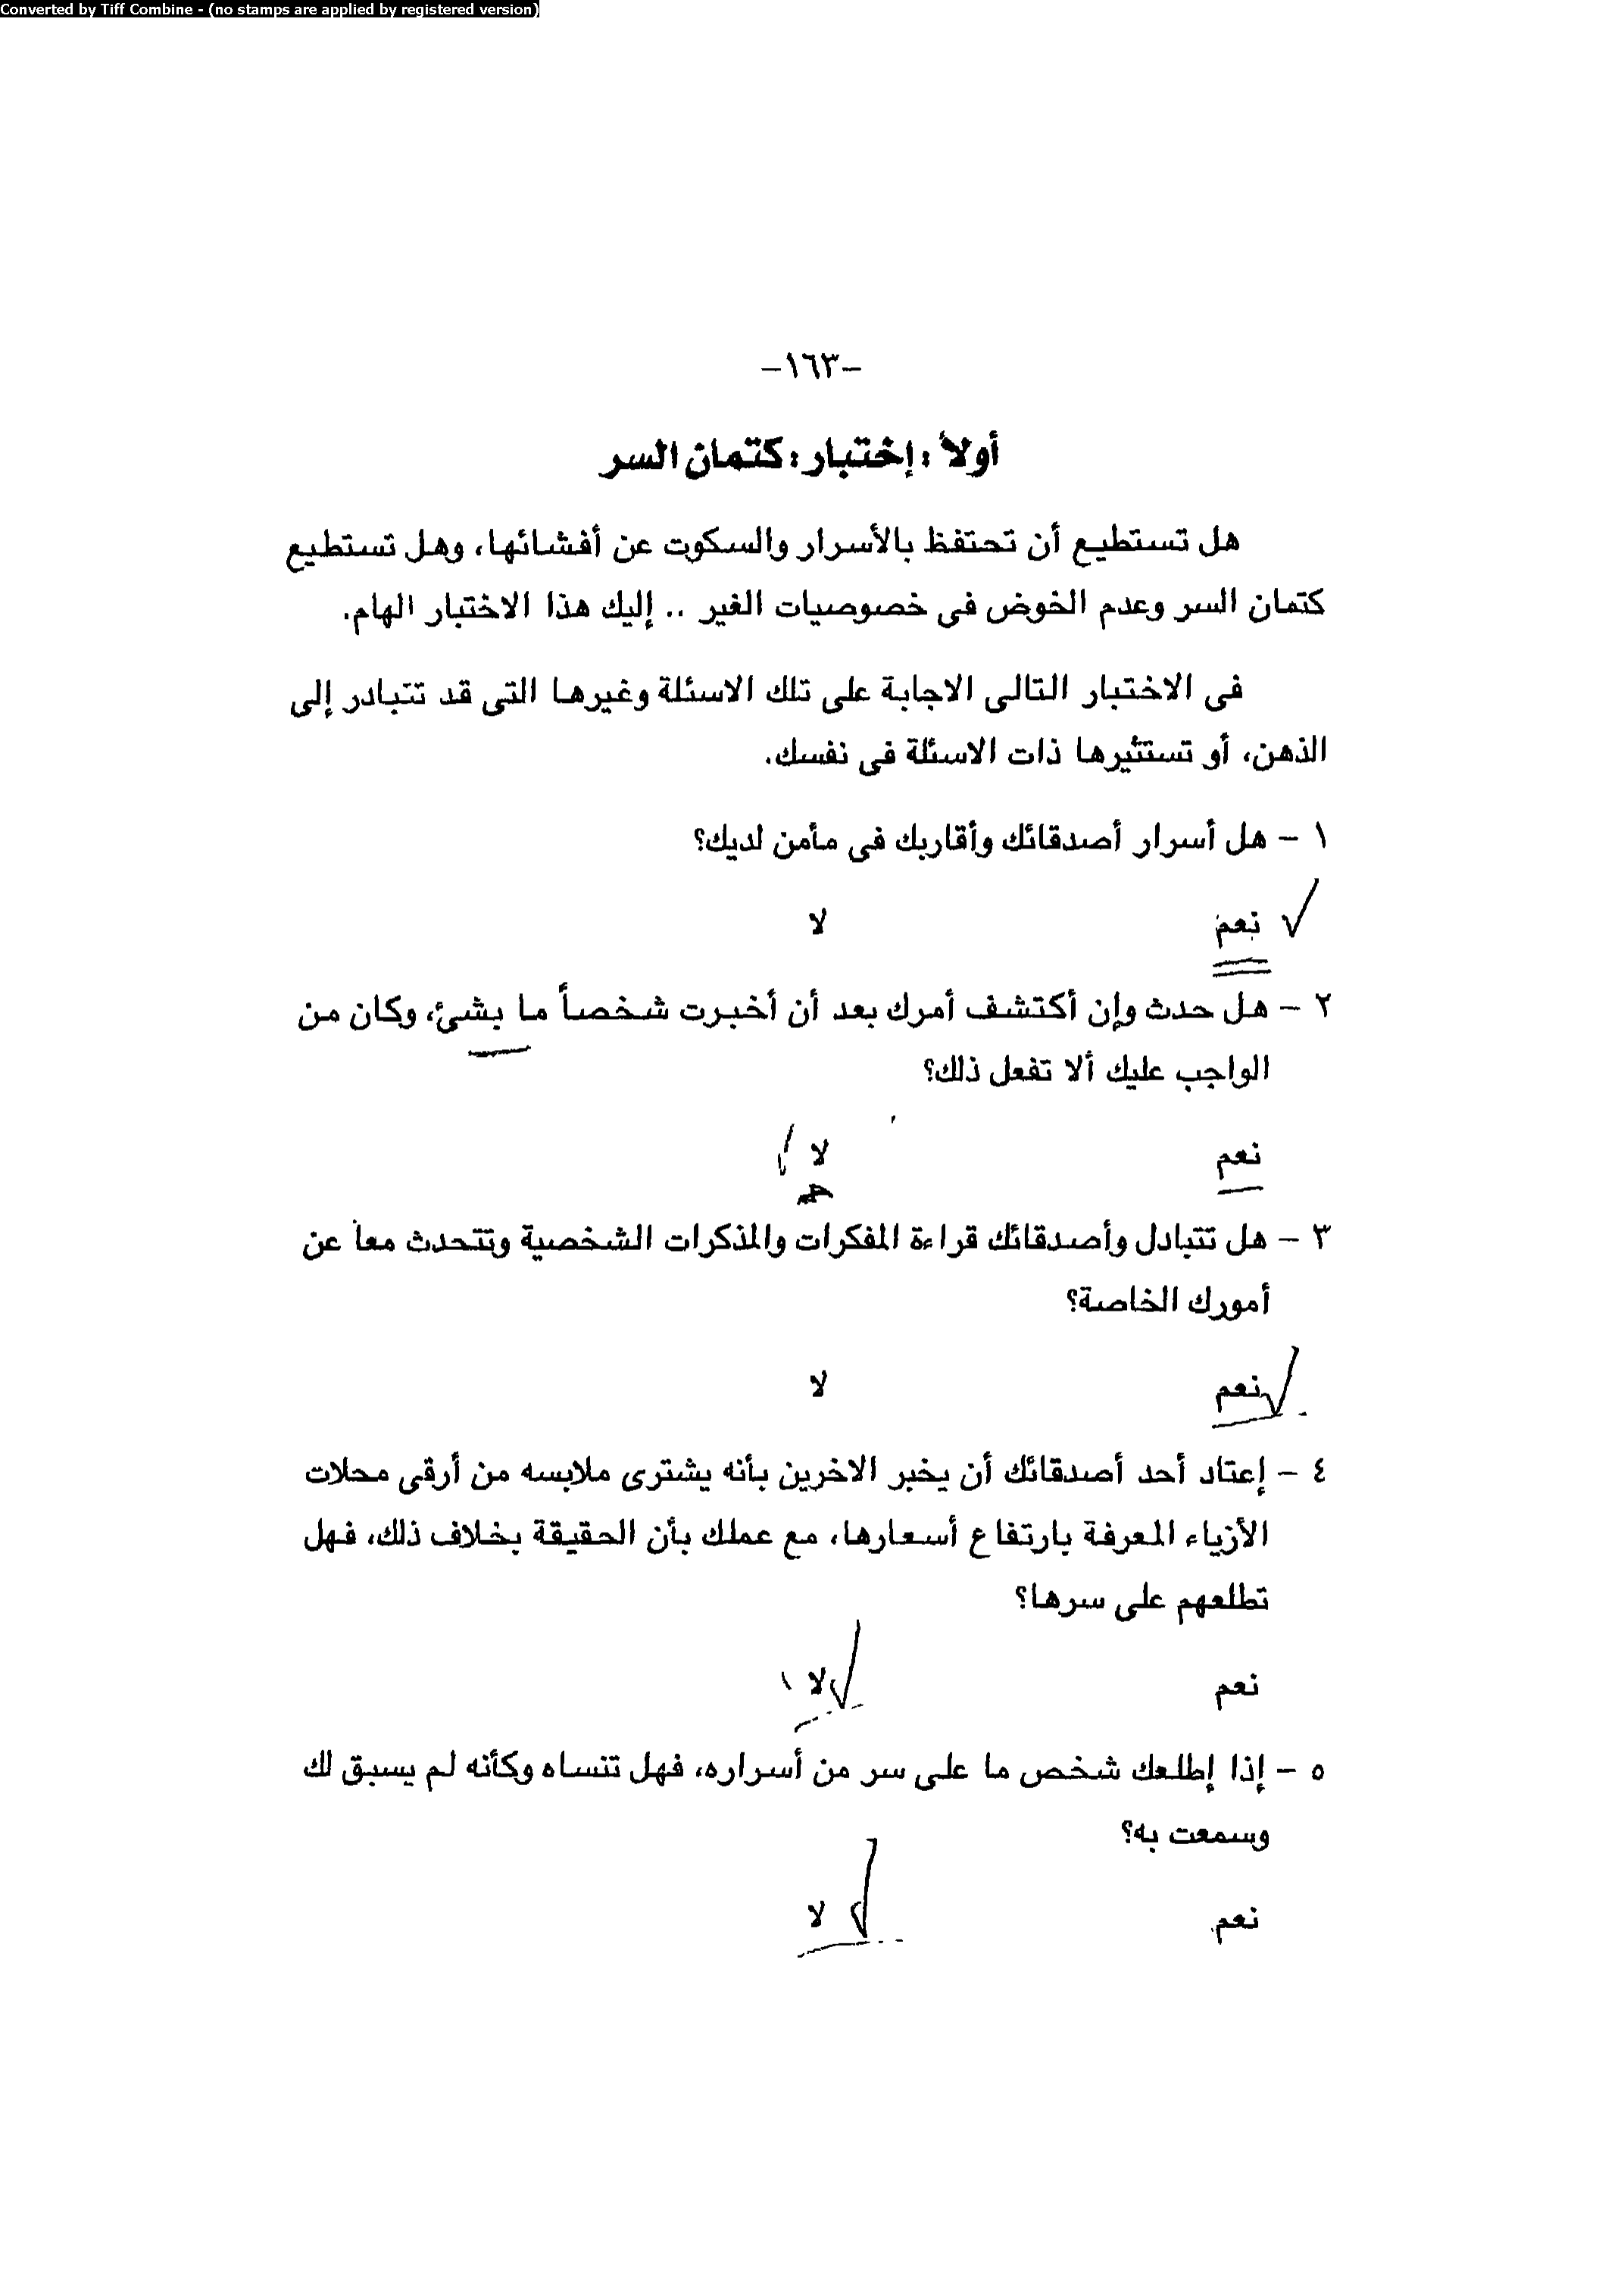 Converted by Tiff Combine - (no stamps are applied by registered version)
-١٦٣-
أولاً : إختبار : كتمان السر
هل تستطيع أن تحتفظ بالأسرار والسكوت عن أفشائها، وهل تستطيع
كتمان السر وعدم الخوض فى خصوصيات الغير .. إليك هذا الاختبار الهام.
فى الاختبار التالى الاجابة على تلك الاسئلة وغيرها التى قد تتبادر إلى
الذهن، أو تستثيرها ذات الاسئلة فى نفسك.
١ - هل أسرار أصدقائك وأقاربك فى مأمن لديك؟
✓ نعم لا
٢ - هل حدث وإن أكتشف أمرك بعد أن أخبرت شخصاً ما بشئ، وكان من
الواجب عليك ألا تفعل ذلك؟
نعم لا
٣ - هل تتبادل وأصدقائك قراءة المفكرات والمذكرات الشخصية وتتحدث معاً عن
أمورك الخاصة؟
✓ نعم لا
٤ - إعتاد أحد أصدقائك أن يخبر الاخرين بأنه يشترى ملابسه من أرقى محلات
الأزياء المعرفة بارتفاع أسعارها، مع عملك بأن الحقيقة بخلاف ذلك، فهل
تطلعهم على سرها؟
نعم ✓ لا
٥ - إذا إطلعك شخص ما على سر من أسراره، فهل تنساه وكأنه لم يسبق لك
وسمعت به؟
نعم ✓ لا